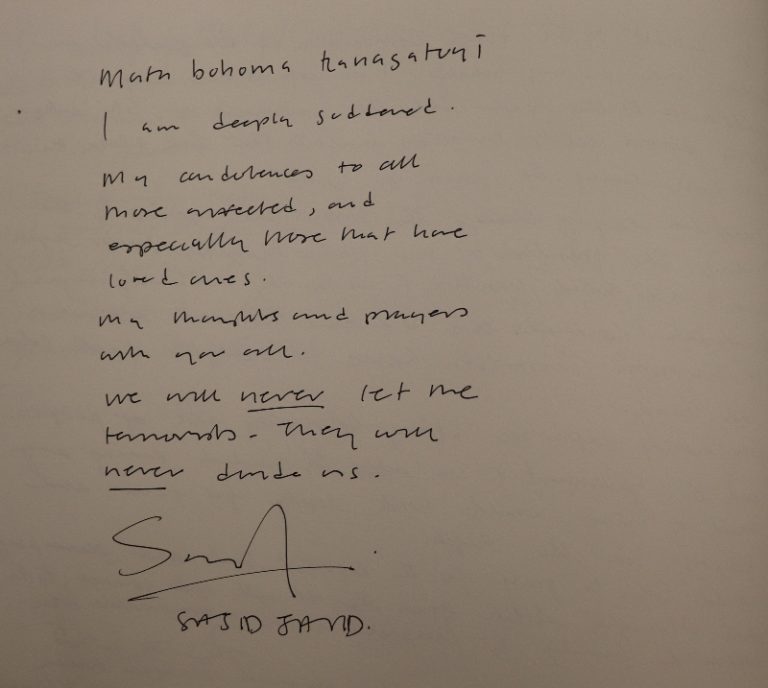 Mata bohoma kanagatuyi
I am deeply saddened.
My condolences to all
those affected, and
especially those that have
loved ones.
My thoughts and prayers
with you all.
We will never let the
terrorists. They will
never divide us.
SAJID JAVID.